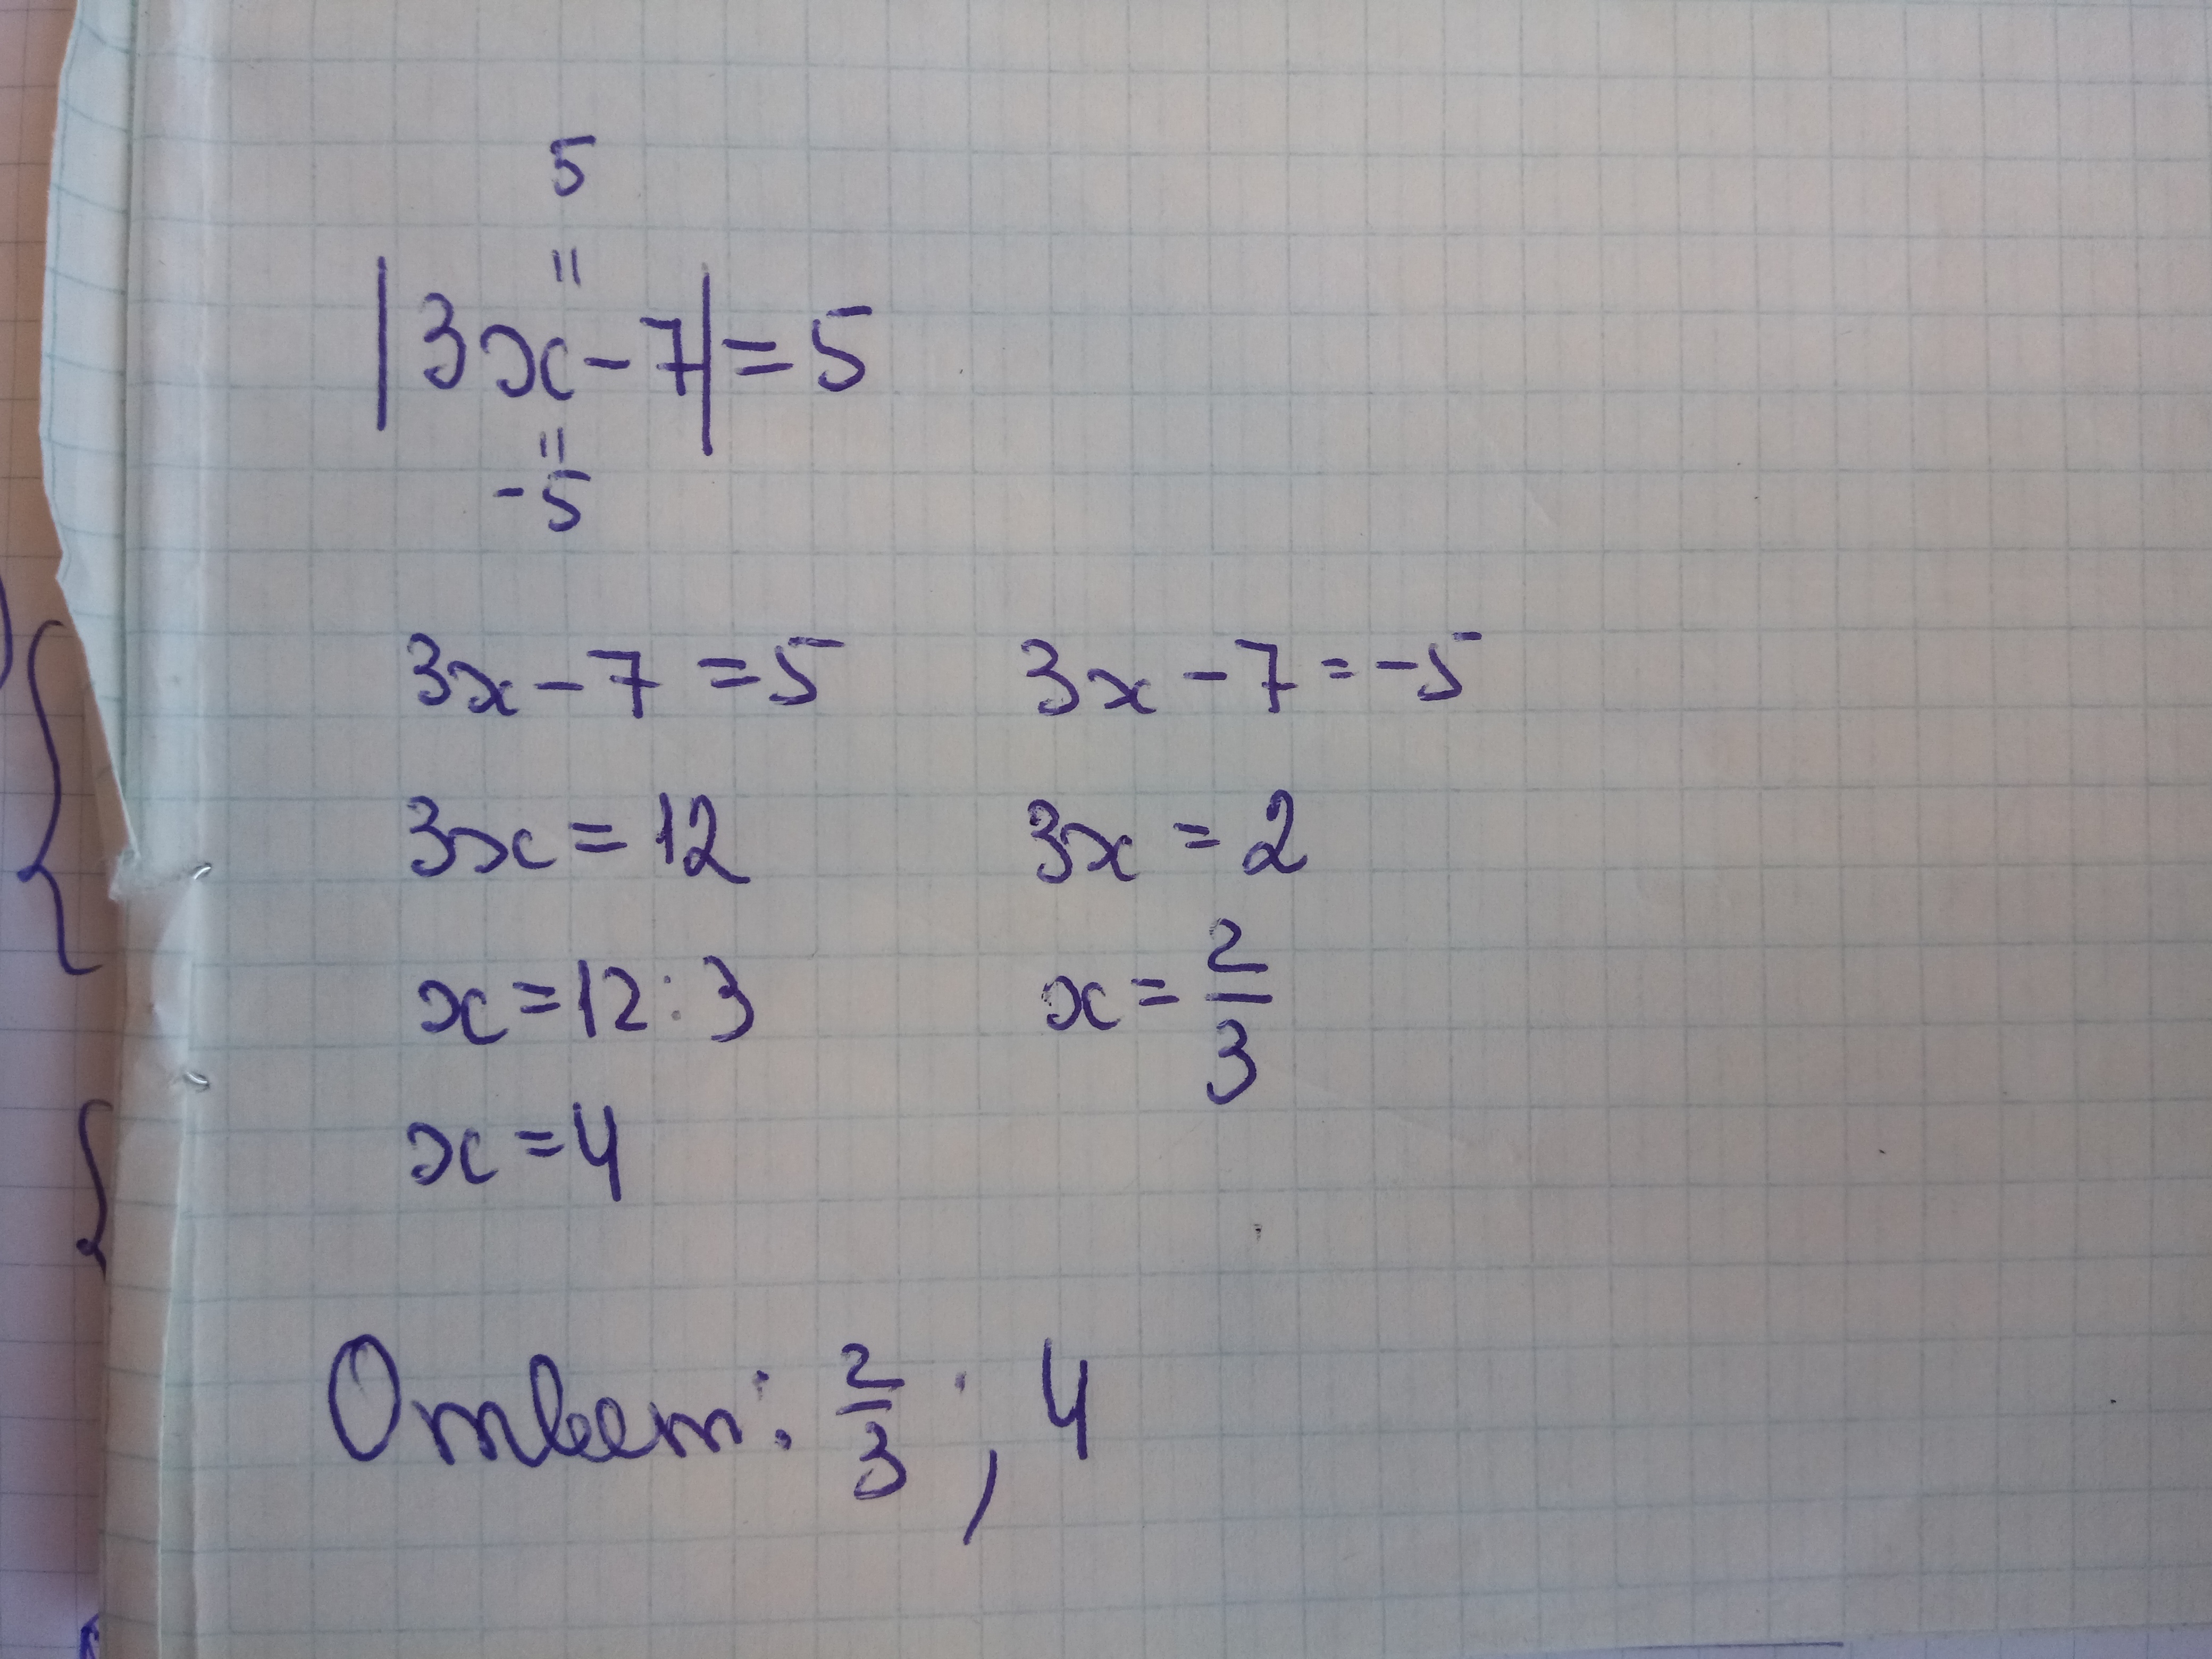 5
||
|3x-7|=5
||
-5
3x-7=5 3x-7=-5
3x=12 3x=2
x=12:3 x=2/3
x=4
Ответ: 2/3; 4